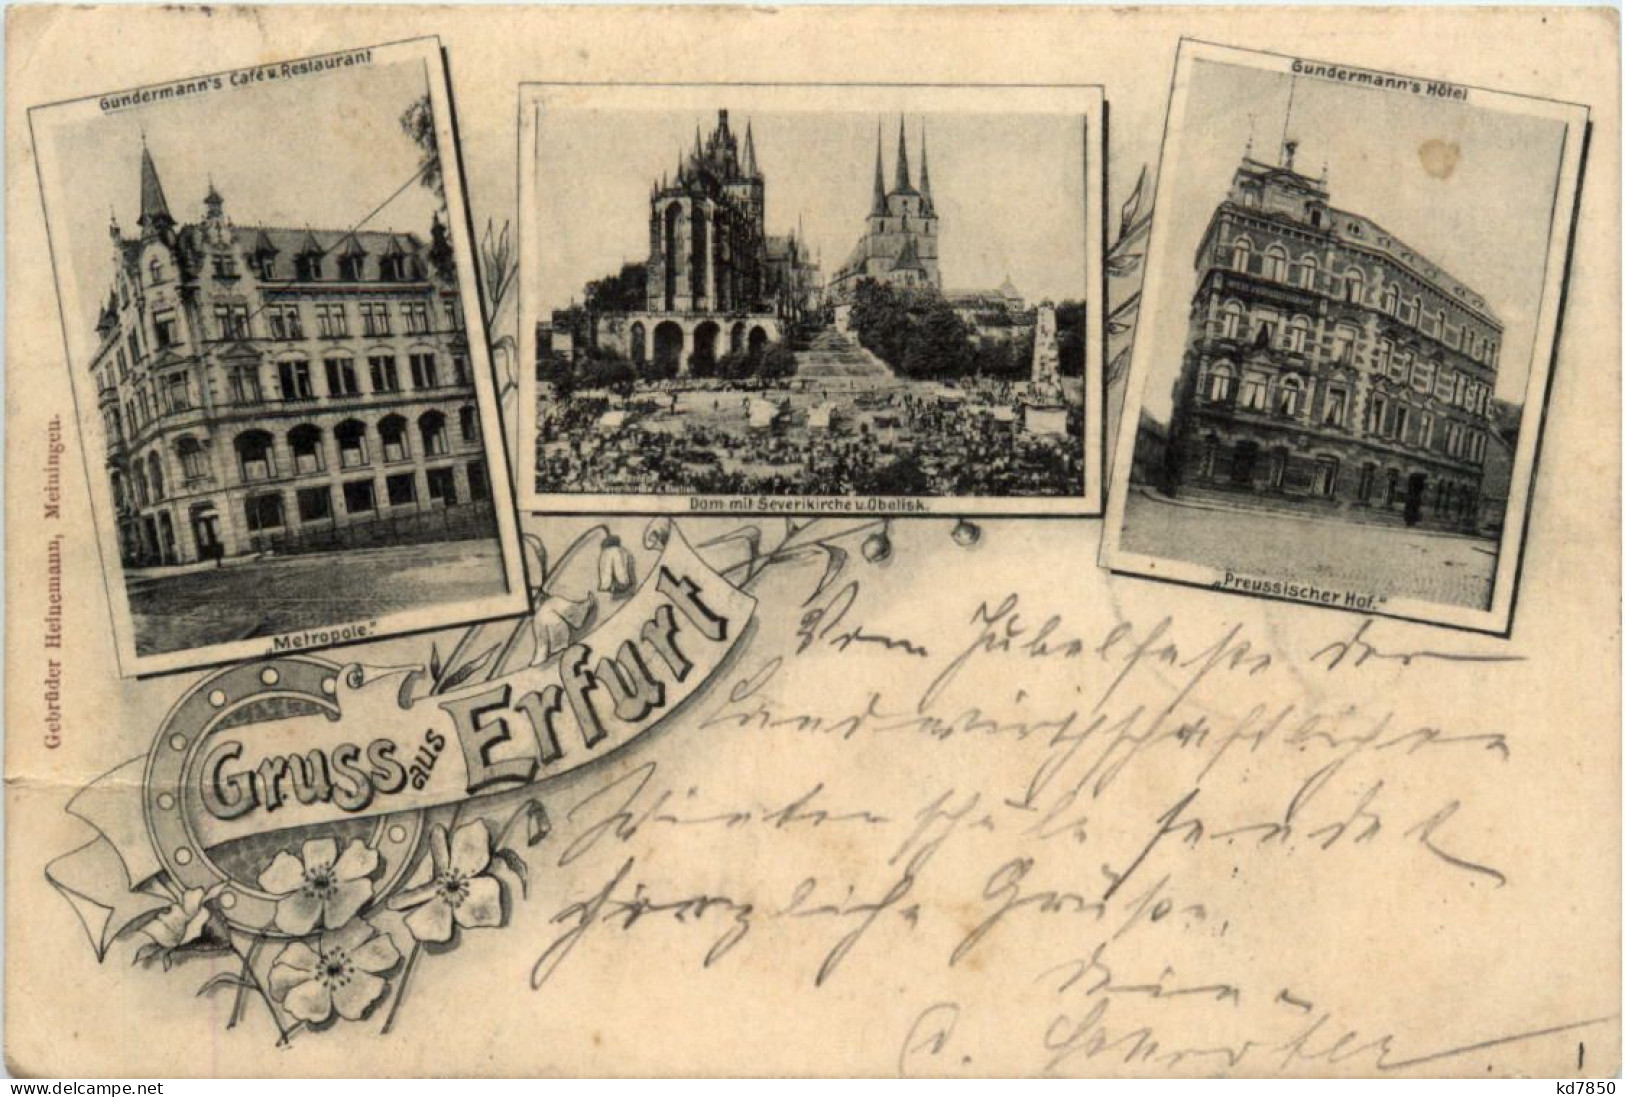 Gundermann's Café u. Restaurant
„Metropole."
Dom mit Severikirche u. Obelisk.
Gundermann's Hôtel
„Preussischer Hof."
Gebrüder Heinemann, Meiningen.
Gruss aus Erfurt
Vom Jubelfeste der
Landwirthschaftlichen
Winterschule sendet
herzliche Grüße
Dein
delcampe.net
kd7850